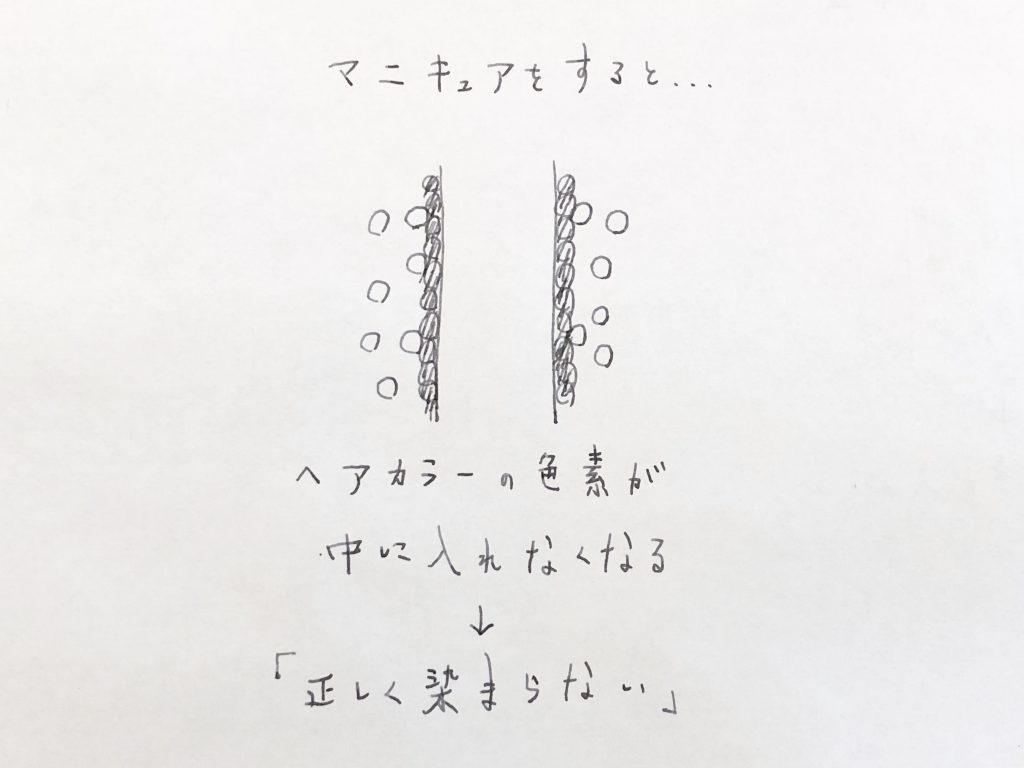 マニキュアをすると...
ヘアカラーの色素が
中に入れなくなる
↓
「正しく染まらない」